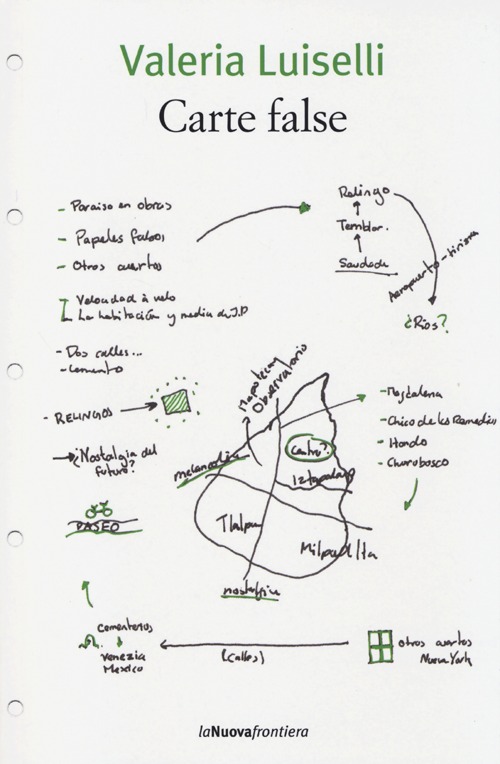 Valeria Luiselli
Carte false
- Paraiso en obras
- Papeles falsos
- Otros cuartos
Velocidad à velo
La habitación y media de J.D
- Dos calles...
- cemento
- RELINGOS
¿Nostalgia del
futuro?
PASEO
cementerios
venezia
Mexico
Relingo
Temblor.
Saudade
Aeropuerto -
¿Ríos?
Mapoteca y
Observatorio
melancolía
Centro?
Iztapalapa
Tlalpan
Milpa Alta
nostalgia
- Magdalena
- Chico de los Remedios
- Hondo
- Churubusco
(calles)
otros cuartos
Nueva York
laNuovafrontiera